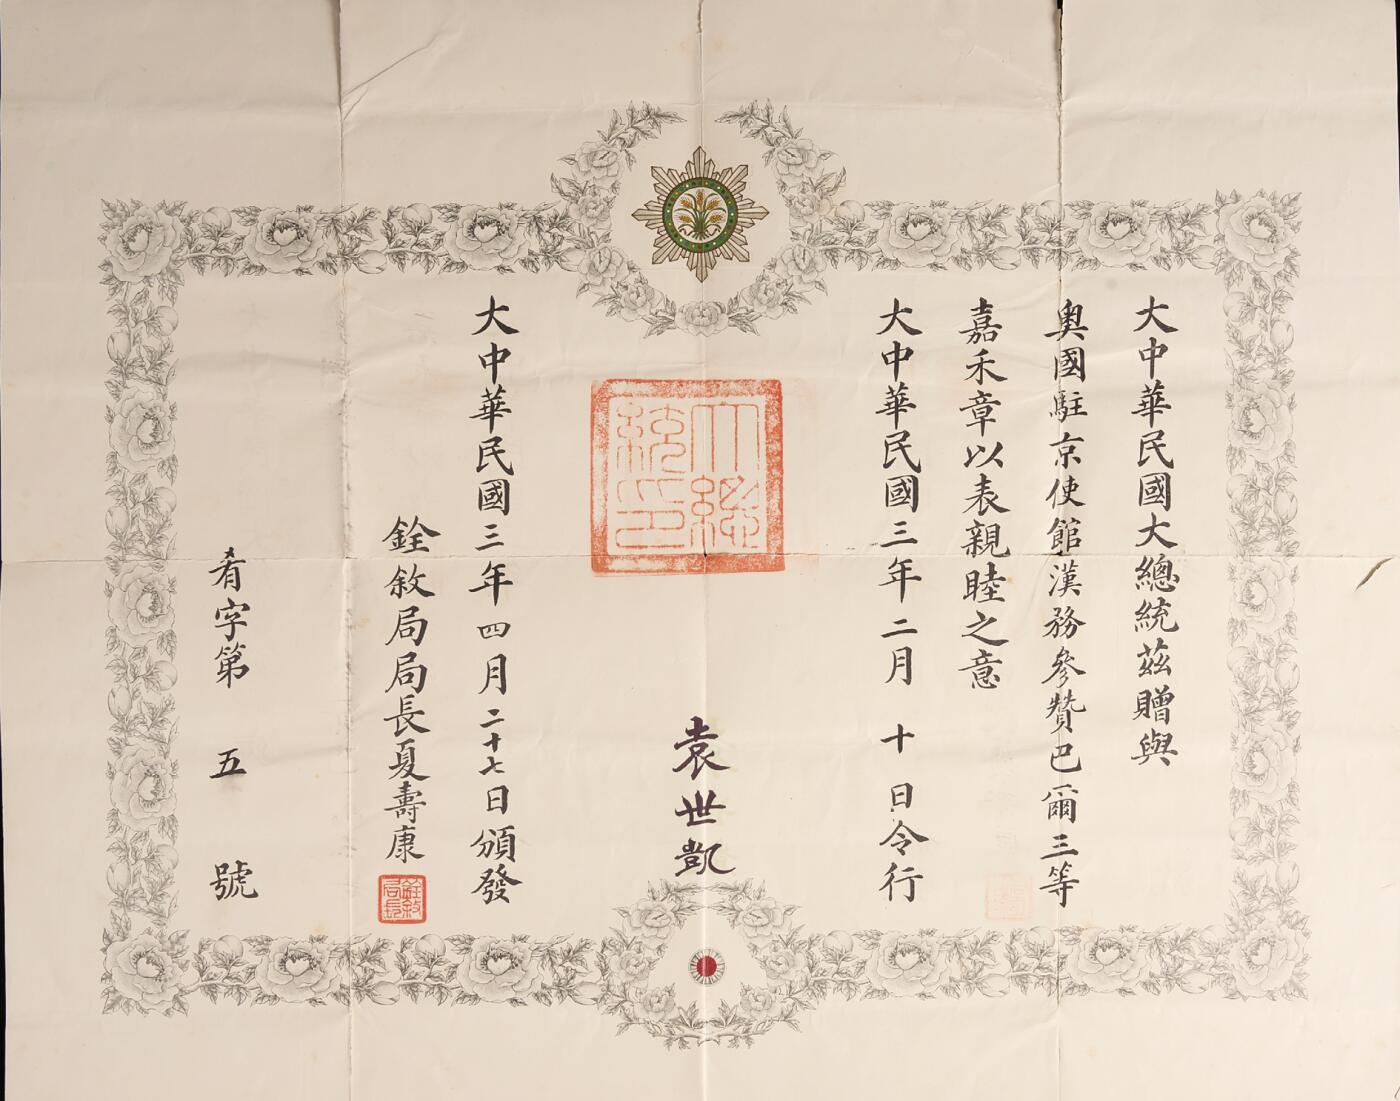 大中華民國大總統茲贈與
奧國駐京使館漢務參贊巴爾三等
嘉禾章以表親睦之意
大中華民國三年二月十日令行
大總統印
袁世凱
大中華民國三年四月二十七日頒發
銓敘局局長夏壽康
銓敘局長
肴字第五號